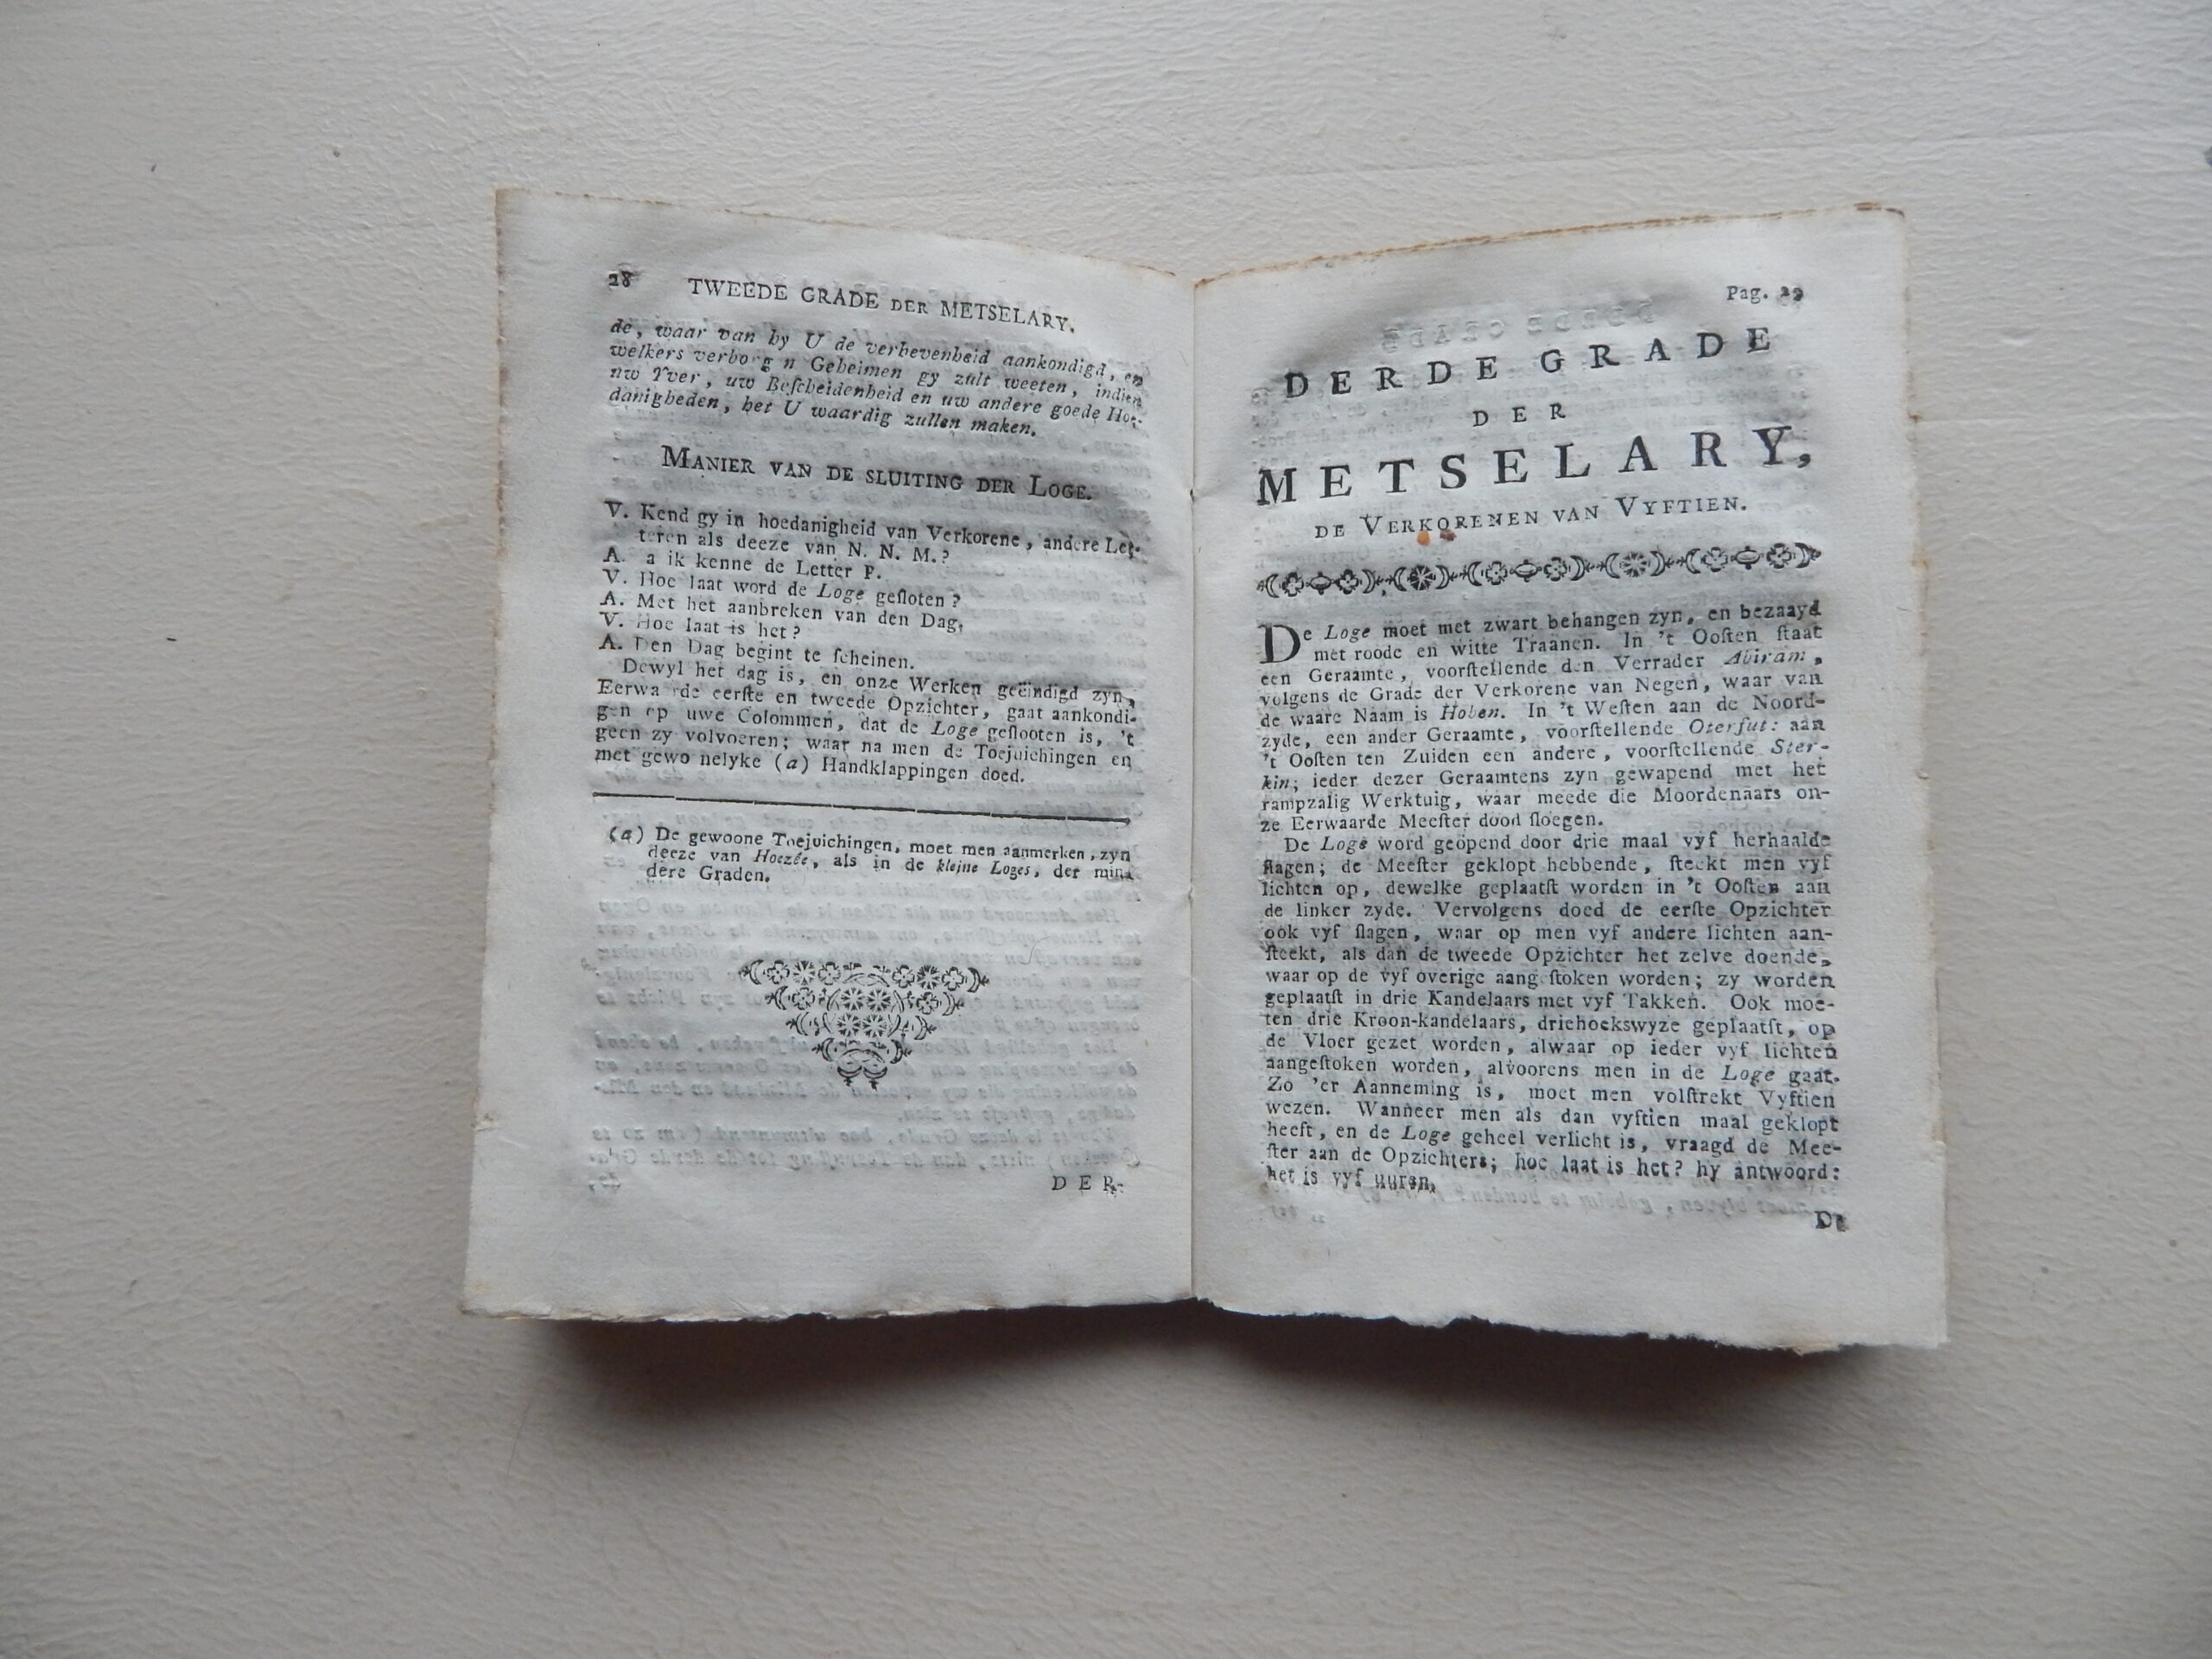 28 TWEEDE GRADE DER METSELARY.
de, waar van hy U de verhevenheid aankondigd, en
welkers verborg n Geheimen gy zult weeten, indien
uw Yver, uw Beſcheidenheid en uw andere goede Hoe-
danigheden, het U waardig zullen maken.
MANIER VAN DE SLUITING DER LOGE.
V. Kend gy in hoedanigheid van Verkorene, andere Let-
teren als deeze van N. N. M.?
A. a ik kenne de Letter P.
V. Hoe laat word de Loge geſloten?
A. Met het aanbreken van den Dag.
V. Hoe laat is het?
A. Den Dag begint te ſcheinen.
Dewyl het dag is, en onze Werken geëindigd zyn,
Eerwa rde eerſte en tweede Opzichter, gaat aankondi-
gen op uwe Colommen, dat de Loge geſlooten is, 't
geen zy volvoeren; waar na men de Toejuichingen en
met gewo nelyke (a) Handklappingen doed.
(a) De gewoone Toejuichingen, moet men aanmerken, zyn
deeze van Hoezée, als in de kleine Loges, der min
dere Graden.
DER-
Pag. 29
DERDE GRADE
DER
METSELARY,
DE VERKORENEN VAN VYFTIEN.
De Loge moet met zwart behangen zyn, en bezaayd
met roode en witte Traanen. In 't Ooſten ſtaat
een Geraamte, voorſtellende den Verrader Abiram,
volgens de Grade der Verkorene van Negen, waar van
de waare Naam is Hoben. In 't Weſten aan de Noord-
zyde, een ander Geraamte, voorſtellende Oterfut: aan
't Ooſten ten Zuiden een andere, voorſtellende Ster-
kin; ieder dezer Geraamtens zyn gewapend met het
rampzalig Werktuig, waar meede die Moordenaars on-
ze Eerwaarde Meeſter dood ſloegen.
De Loge word geöpend door drie maal vyf herhaalde
ſlagen; de Meeſter geklopt hebbende, ſteekt men vyf
lichten op, dewelke geplaatſt worden in 't Ooſten aan
de linker zyde. Vervolgens doed de eerſte Opzichter
ook vyf ſlagen, waar op men vyf andere lichten aan-
ſteekt, als dan de tweede Opzichter het zelve doende,
waar op de vyf overige aangeſtoken worden; zy worden
geplaatſt in drie Kandelaars met vyf Takken. Ook moe-
ten drie Kroon-kandelaars, driehoekswyze geplaatſt, op
de Vloer gezet worden, alwaar op ieder vyf lichten
aangeſtoken worden, alvoorens men in de Loge gaat.
Zo 'er Aanneming is, moet men volſtrekt Vyftien
wezen. Wanneer men als dan vyftien maal geklopt
heeft, en de Loge geheel verlicht is, vraagd de Mee-
ſter aan de Opzichters; hoe laat is het? hy antwoord:
het is vyf uuren,
De